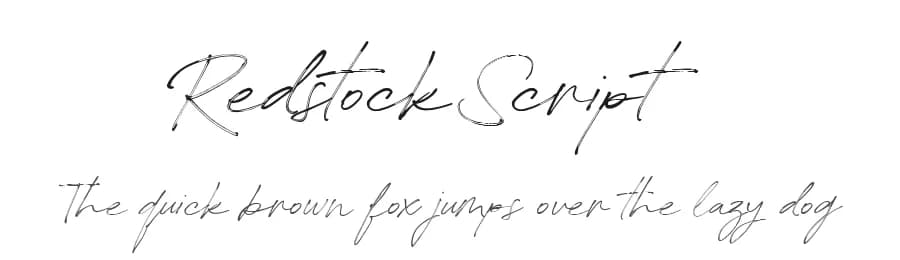 Redstock Script
The quick brown fox jumps over the lazy dog